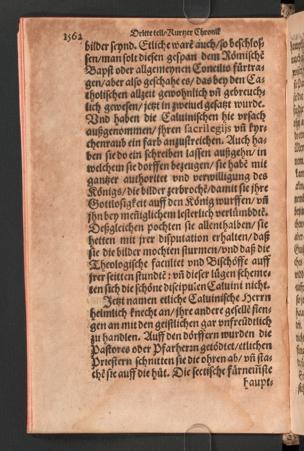 Dritte teil/Kurtzer Chronik
1562
bilder seynd. Etliche warẽ auch/so beschlos-
sen/man solt diesen gespan dem Römischẽ
Bapst oder allgemeynen Concilio fürtra-
gen/aber also geschahe es/das bey den Ca-
tholischen allzeit gewohnlich vñ gebreuch-
lich gewesen/jetzt in zweiuel gesatzt wurde.
Vnd haben die Caluinischen hie vrsach
außgenommen/jhren sacrilegijs vñ kyr-
chenraub ein farb anzustreichen. Auch ha-
ben sie do ein schreiben lassen außgehn/in
welchem sie dorffen bezeugen/sie habẽ mit
gantzer authoritet vnd verwilligung des
Königs/die bilder zerbrochẽ/damit sie jhre
Gottlosigkeit auff den König wurffen/vñ
jhn bey meñiglichem lesterlich verlümbdtẽ.
Deßgleichen pochten sie allenthalben/sie
hetten mit jrer disputation erhalten/daß
sie die bilder mochten stürmen/vnd daß die
Theologische facultet vnd Bischöffe auff
jrer seitten stundtẽ: vñ dieser lügen scheme-
ten sich die schöne discipulen Caluini nicht.
Jetzt namen etliche Caluinische Herrn
heimlich knecht an/jhre andere gesellẽ fien-
gen an mit den geistlichen gar vnfreüdtlich
zu handlen. Auff den dörffern wurden die
Pastores oder Pfarherrn getödtet/etlichen
Priestern schnitten sie die ohren ab/vñ sta-
chẽ sie auff die hüt. Die sectische fürneiñste
haupt-